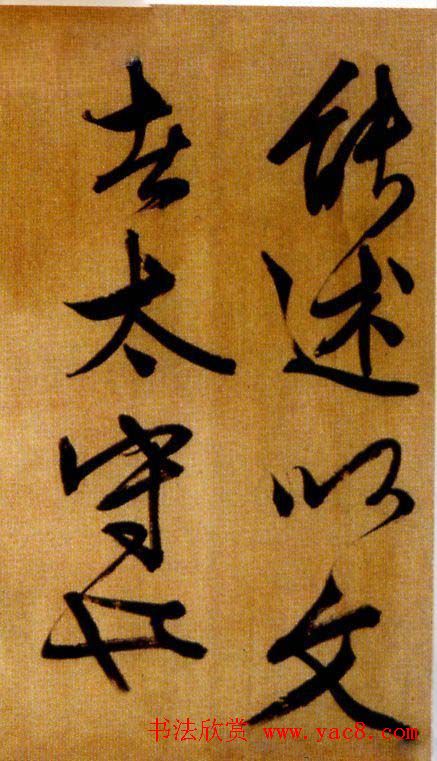 能述以文
者太守也
书法欣赏 www.yac8.com